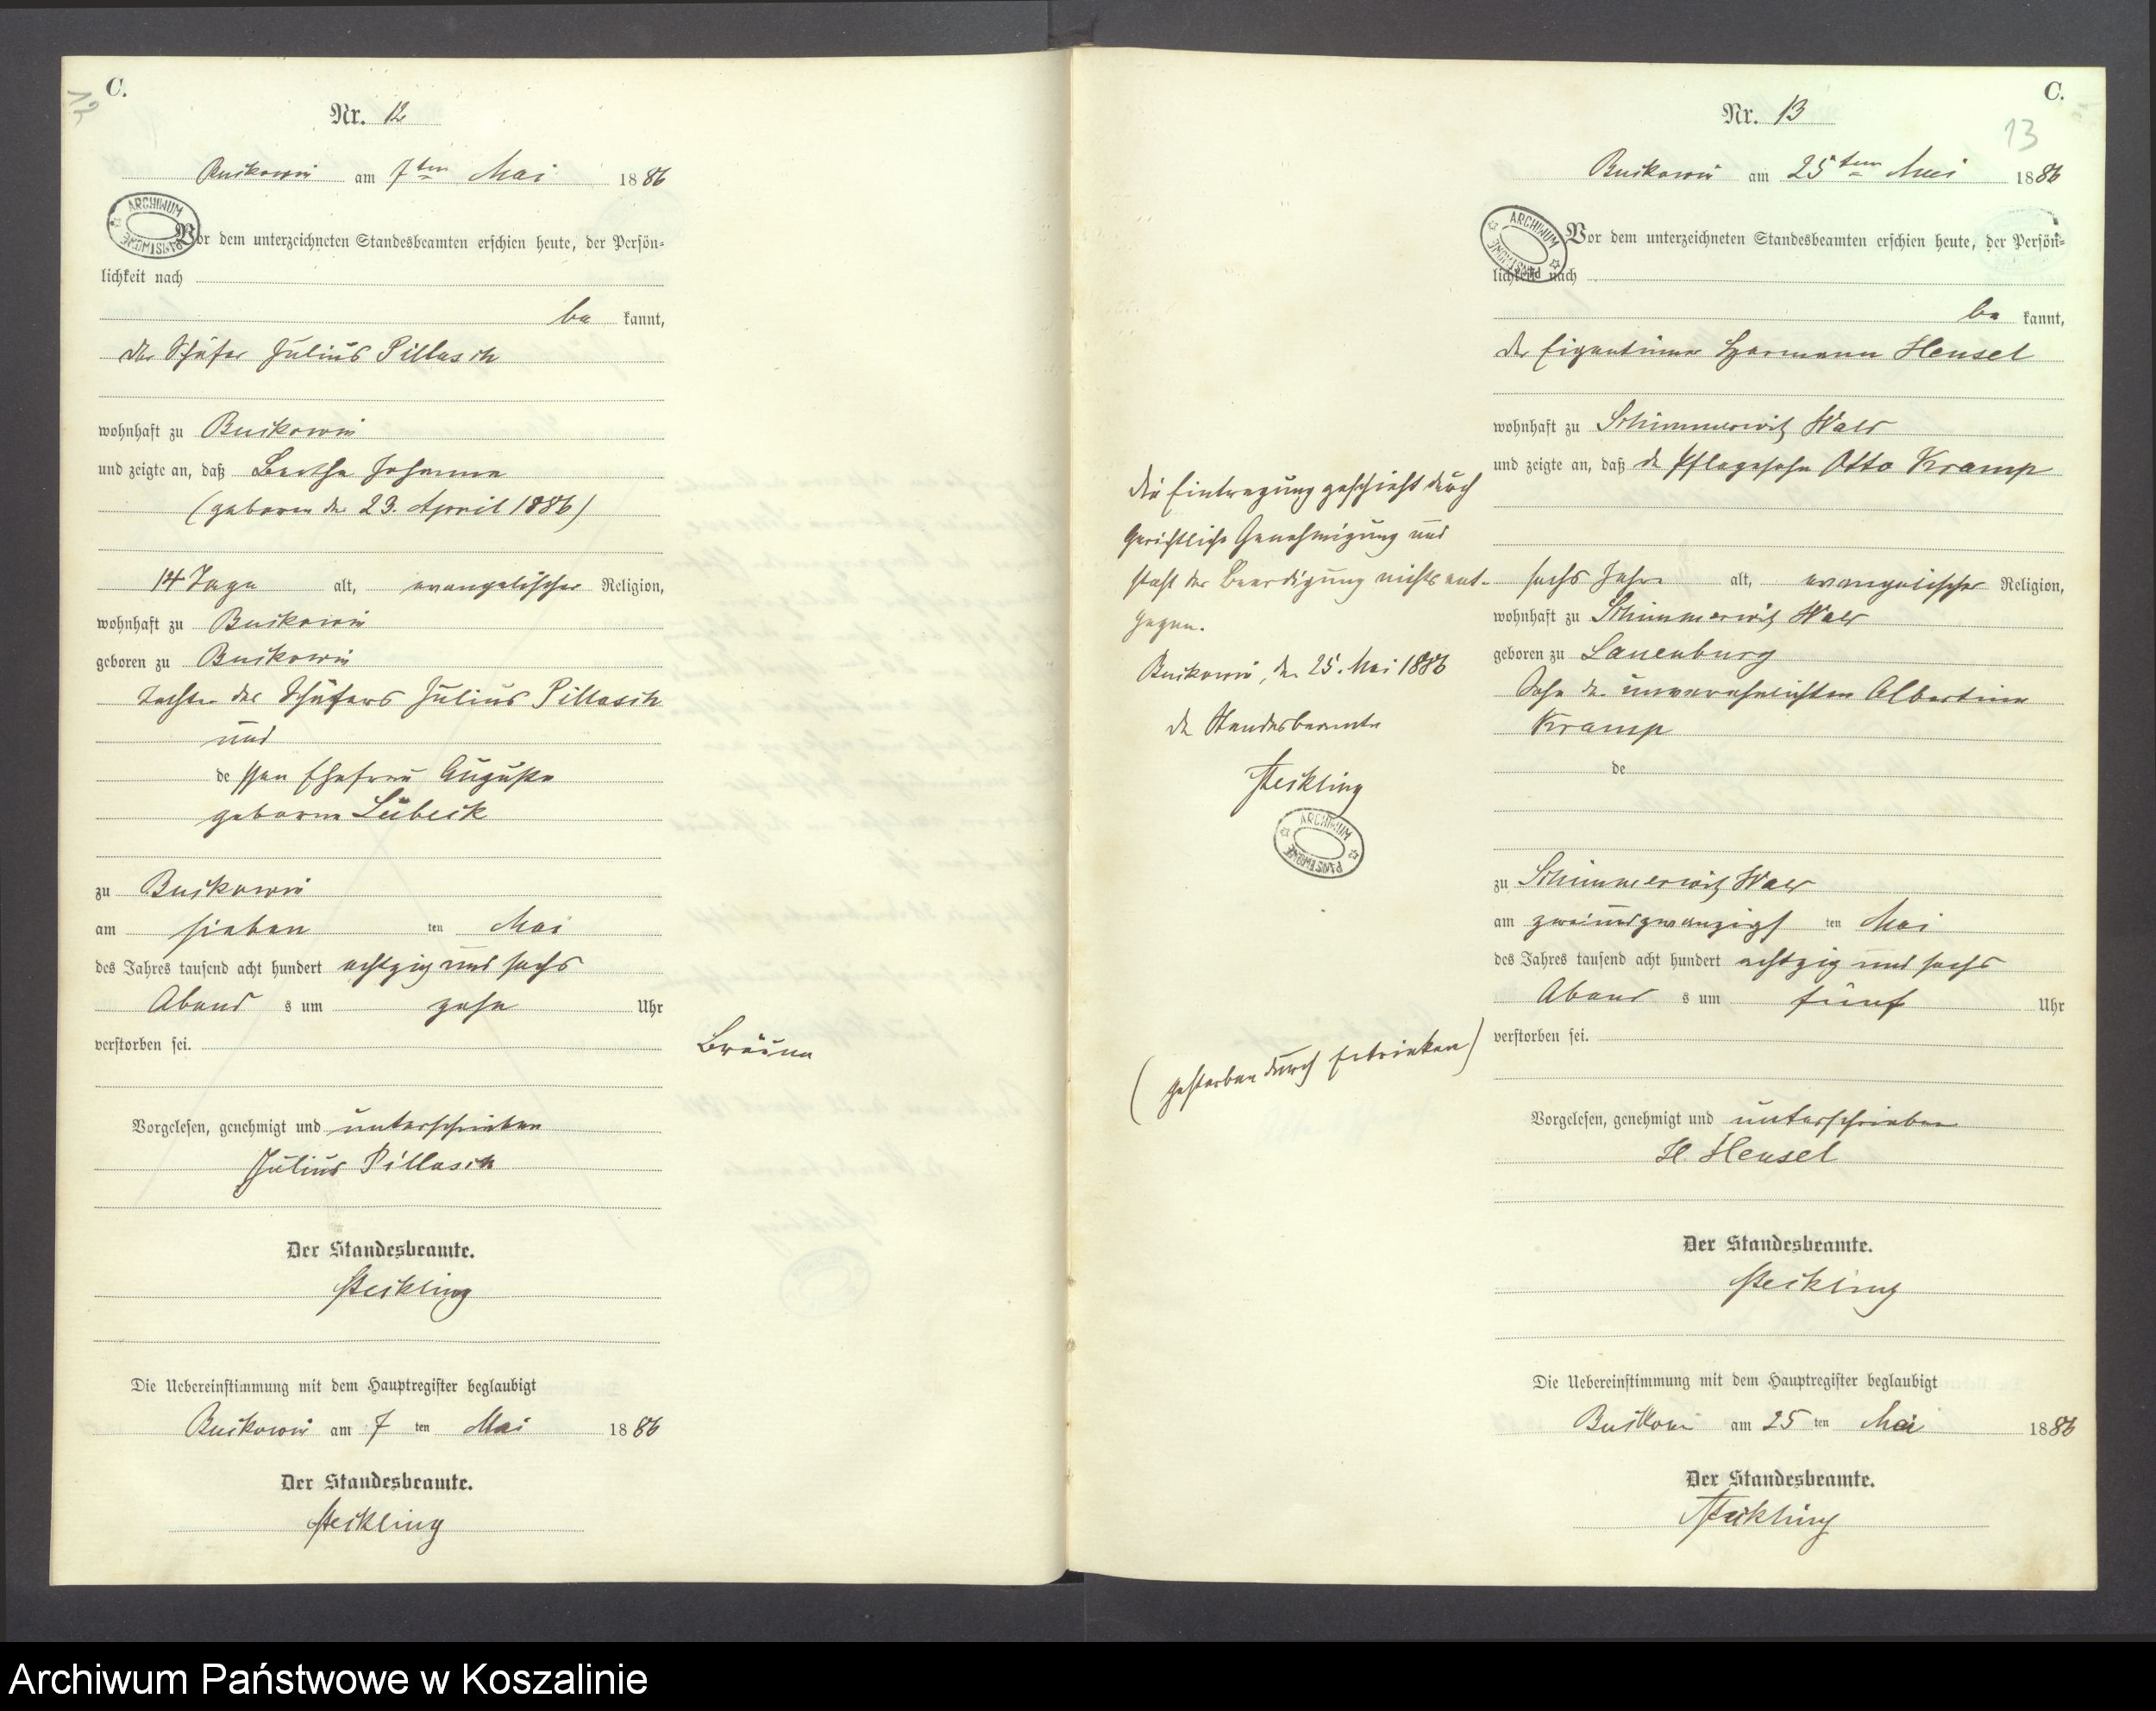 C.
Nr. 12
Buckowin am 7ten Mai 1886
ARCHIWUM PAŃSTWOWE
Vor dem unterzeichneten Standesbeamten erschien heute, der Persön-
lichkeit nach
be kannt,
der Schäfer Julius Pillasch
wohnhaft zu Buckowin
und zeigte an, daß Bertha Johanna
(geboren den 23. April 1886)
14 Tage alt, evangelischer Religion,
wohnhaft zu Buckowin
geboren zu Buckowin
Tochter des Schäfers Julius Pillasch
und
dessen Ehefrau Auguste
geborne Lübeck
zu Buckowin
am sieben ten Mai
des Jahres tausend acht hundert achtzig und sechs
Abend s um zehn Uhr
verstorben sei.
Bräune
Vorgelesen, genehmigt und unterschrieben
Julius Pillasch
Der Standesbeamte.
Steckling
Die Uebereinstimmung mit dem Hauptregister beglaubigt
Buckowin am 7 ten Mai 1886
Der Standesbeamte.
Steckling
C.
Nr. 13
13
Buckowin am 25ten Mai 1886
ARCHIWUM PAŃSTWOWE
Vor dem unterzeichneten Standesbeamten erschien heute, der Persön-
lichkeit nach
be kannt,
der Eigentümer Hermann Hensel
wohnhaft zu Schimmerwitz Wald
und zeigte an, daß der Pflegesohn Otto Kramp
sechs Jahre alt, evangelischer Religion,
wohnhaft zu Schimmerwitz Wald
geboren zu Lauenburg
Sohn der unverehelichten Albertine
Kramp
de
zu Schimmerwitz Wald
am zweiundzwanzigs ten Mai
des Jahres tausend acht hundert achtzig und sechs
Abend s um fünf Uhr
verstorben sei.
Vorgelesen, genehmigt und unterschrieben
H. Hensel
Der Standesbeamte.
Steckling
Die Uebereinstimmung mit dem Hauptregister beglaubigt
Buckowin am 25 ten Mai 1886
Der Standesbeamte.
Steckling
Die Eintragung geschieht durch
gerichtliche Genehmigung und
steht der Beerdigung nichts ent-
gegen.
Buckowin, den 25. Mai 1886
der Standesbeamte
Steckling
ARCHIWUM PAŃSTWOWE
(gestorben durch Ertrinken)
Archiwum Państwowe w Koszalinie